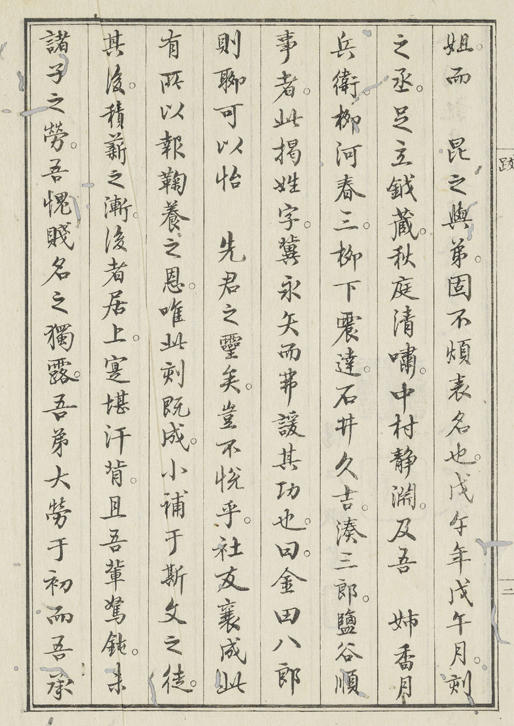 姐而　昆之與弟。固不煩表名也。戊午年戊午月。刻
之丞。足立鉞藏。秋庭清嘯。中村静淵。及吾　姉香月
兵衛。柳河春三。柳下震達。石井久吉。湊三郎。鹽谷順
事者。此揭姓字。冀永矢而弗諼其功也。曰金田八郎
則聊可以怡　先君之靈矣。豈不悅乎。社友襄成此
有所以報鞠養之恩。唯此刻既成。小補于斯文之徒。
其後積薪之漸。後者居上。寔堪汗背。且吾輩駑鈍。未
諸子之勞。吾愧賤名之獨露。吾弟大勞于初。而吾承
跋
二